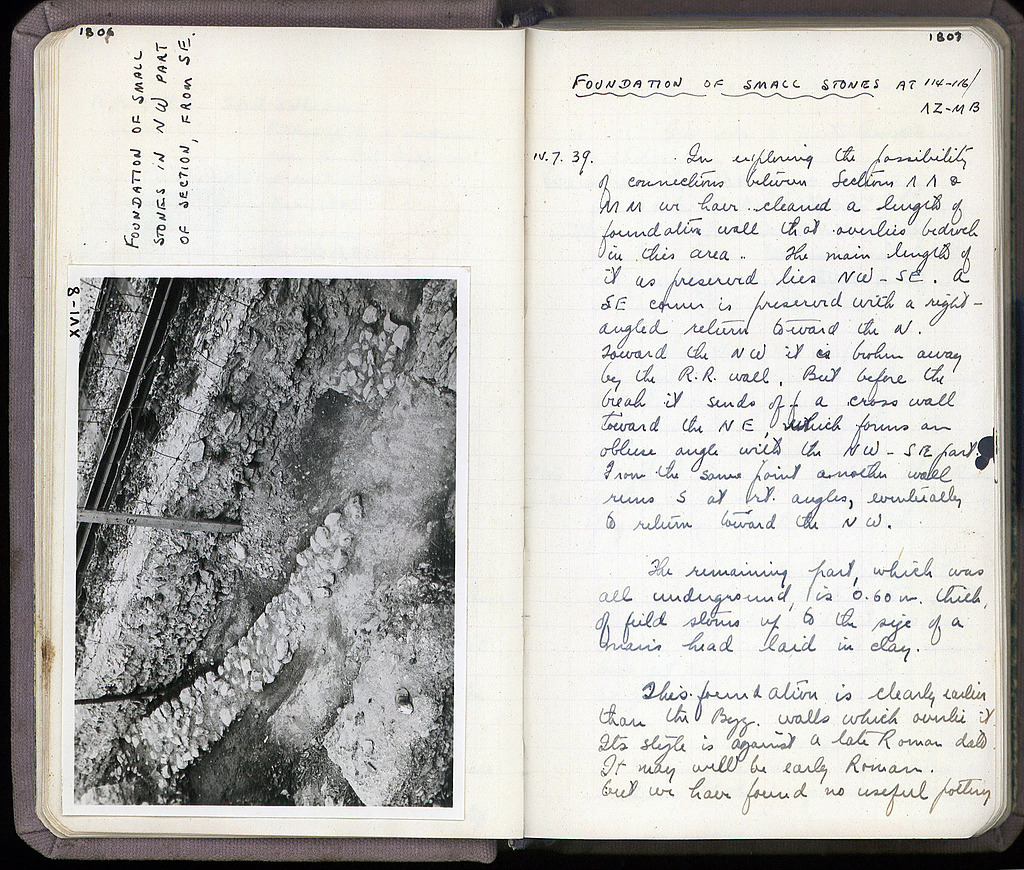 1806
FOUNDATION OF SMALL
STONES IN NW PART
OF SECTION, FROM SE.
XVI-8
1807
FOUNDATION OF SMALL STONES AT 114-116/
ΛZ-MB
IV.7.39. In exploring the possibility
of connections between Sections ΛΛ &
MM we have cleaned a length of
foundation wall that overlies bedrock
in this area. The main length of
it as preserved lies NW-SE. A
SE corner is preserved with a right-
angled return toward the N.
Toward the NW it is broken away
by the R.R. wall. But before the
break it sends off a cross wall
toward the NE, which forms an
obtuse angle with the NW-SE part.
From the same point another wall
runs S at rt. angles, eventually
to return toward the NW.
The remaining part, which was
all underground, is 0.60 m. thick,
of field stones up to the size of a
man's head laid in clay.
This foundation is clearly earlier
than the Byz. walls which overlie it.
Its style is against a late Roman date.
It may well be early Roman.
but we have found no useful pottery